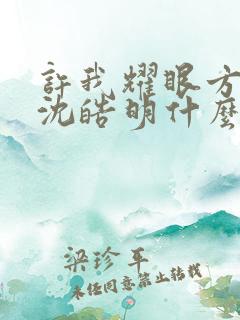 许我耀眼方
沈皓明什麼
梁珍平
未经同意禁止转载